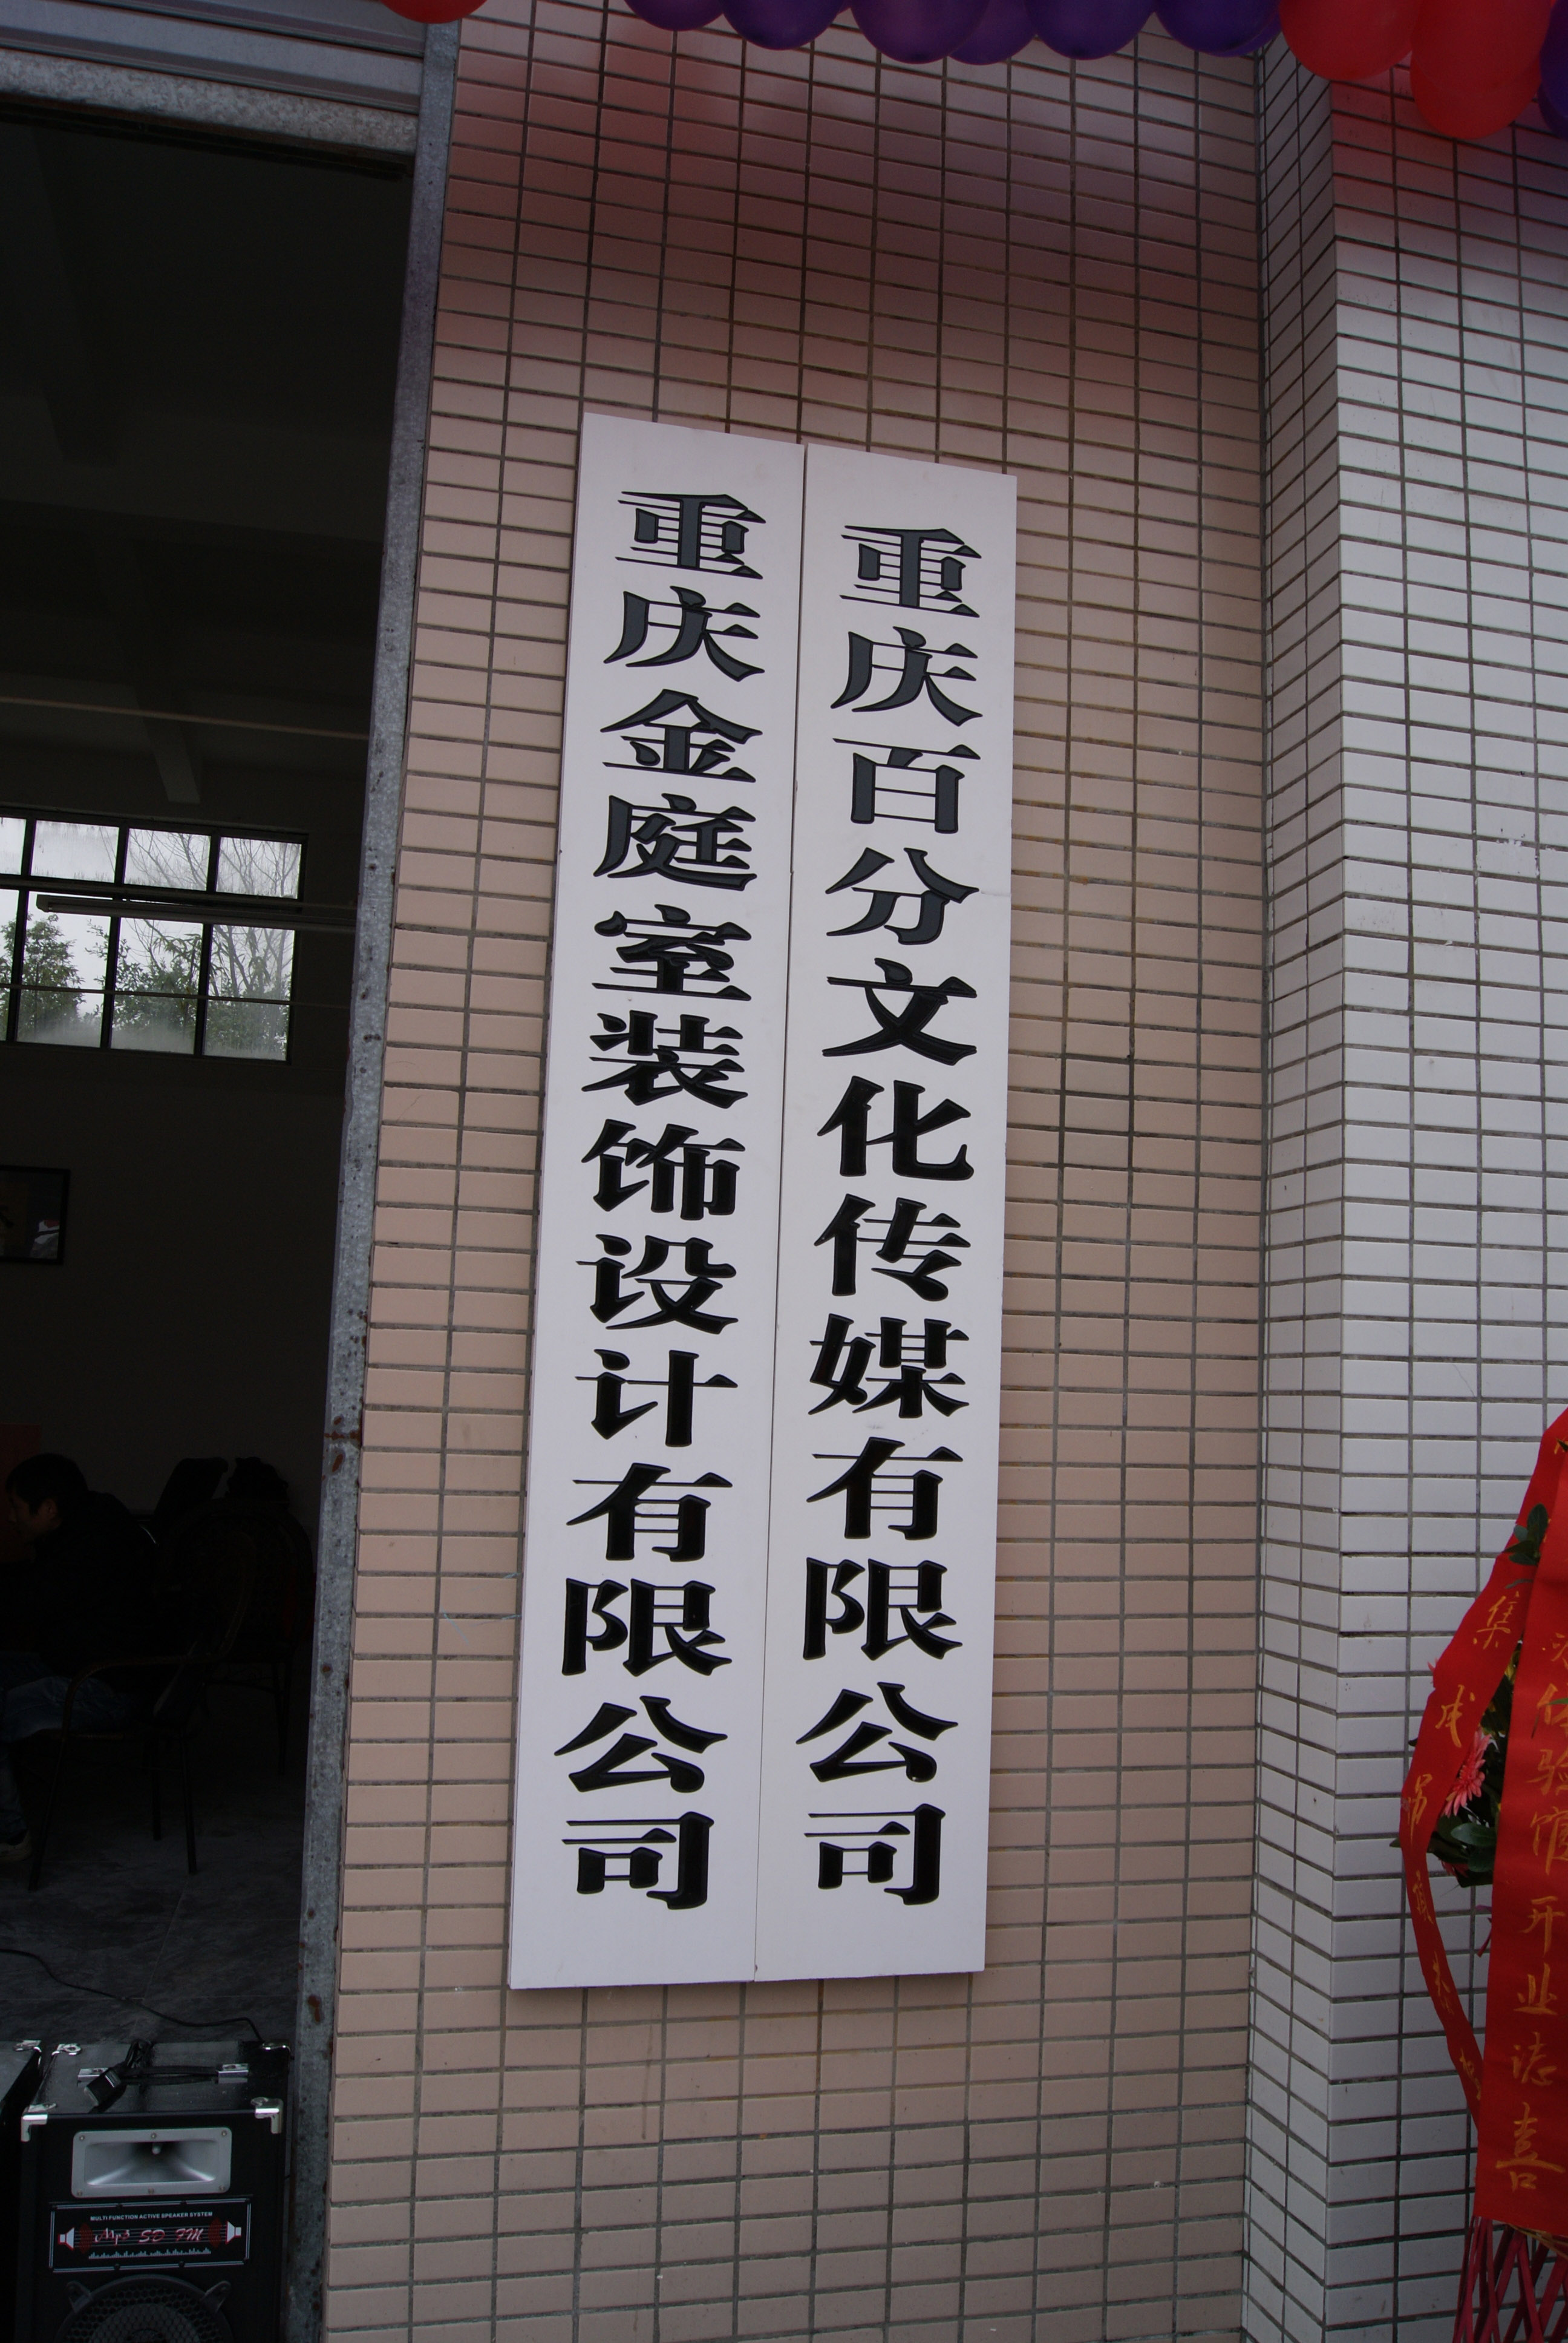 重庆金庭室装饰设计有限公司
重庆百分文化传媒有限公司
集
成
开业志喜
MULTI FUNCTION ACTIVE SPEAKER SYSTEM
Mp3 SD FM